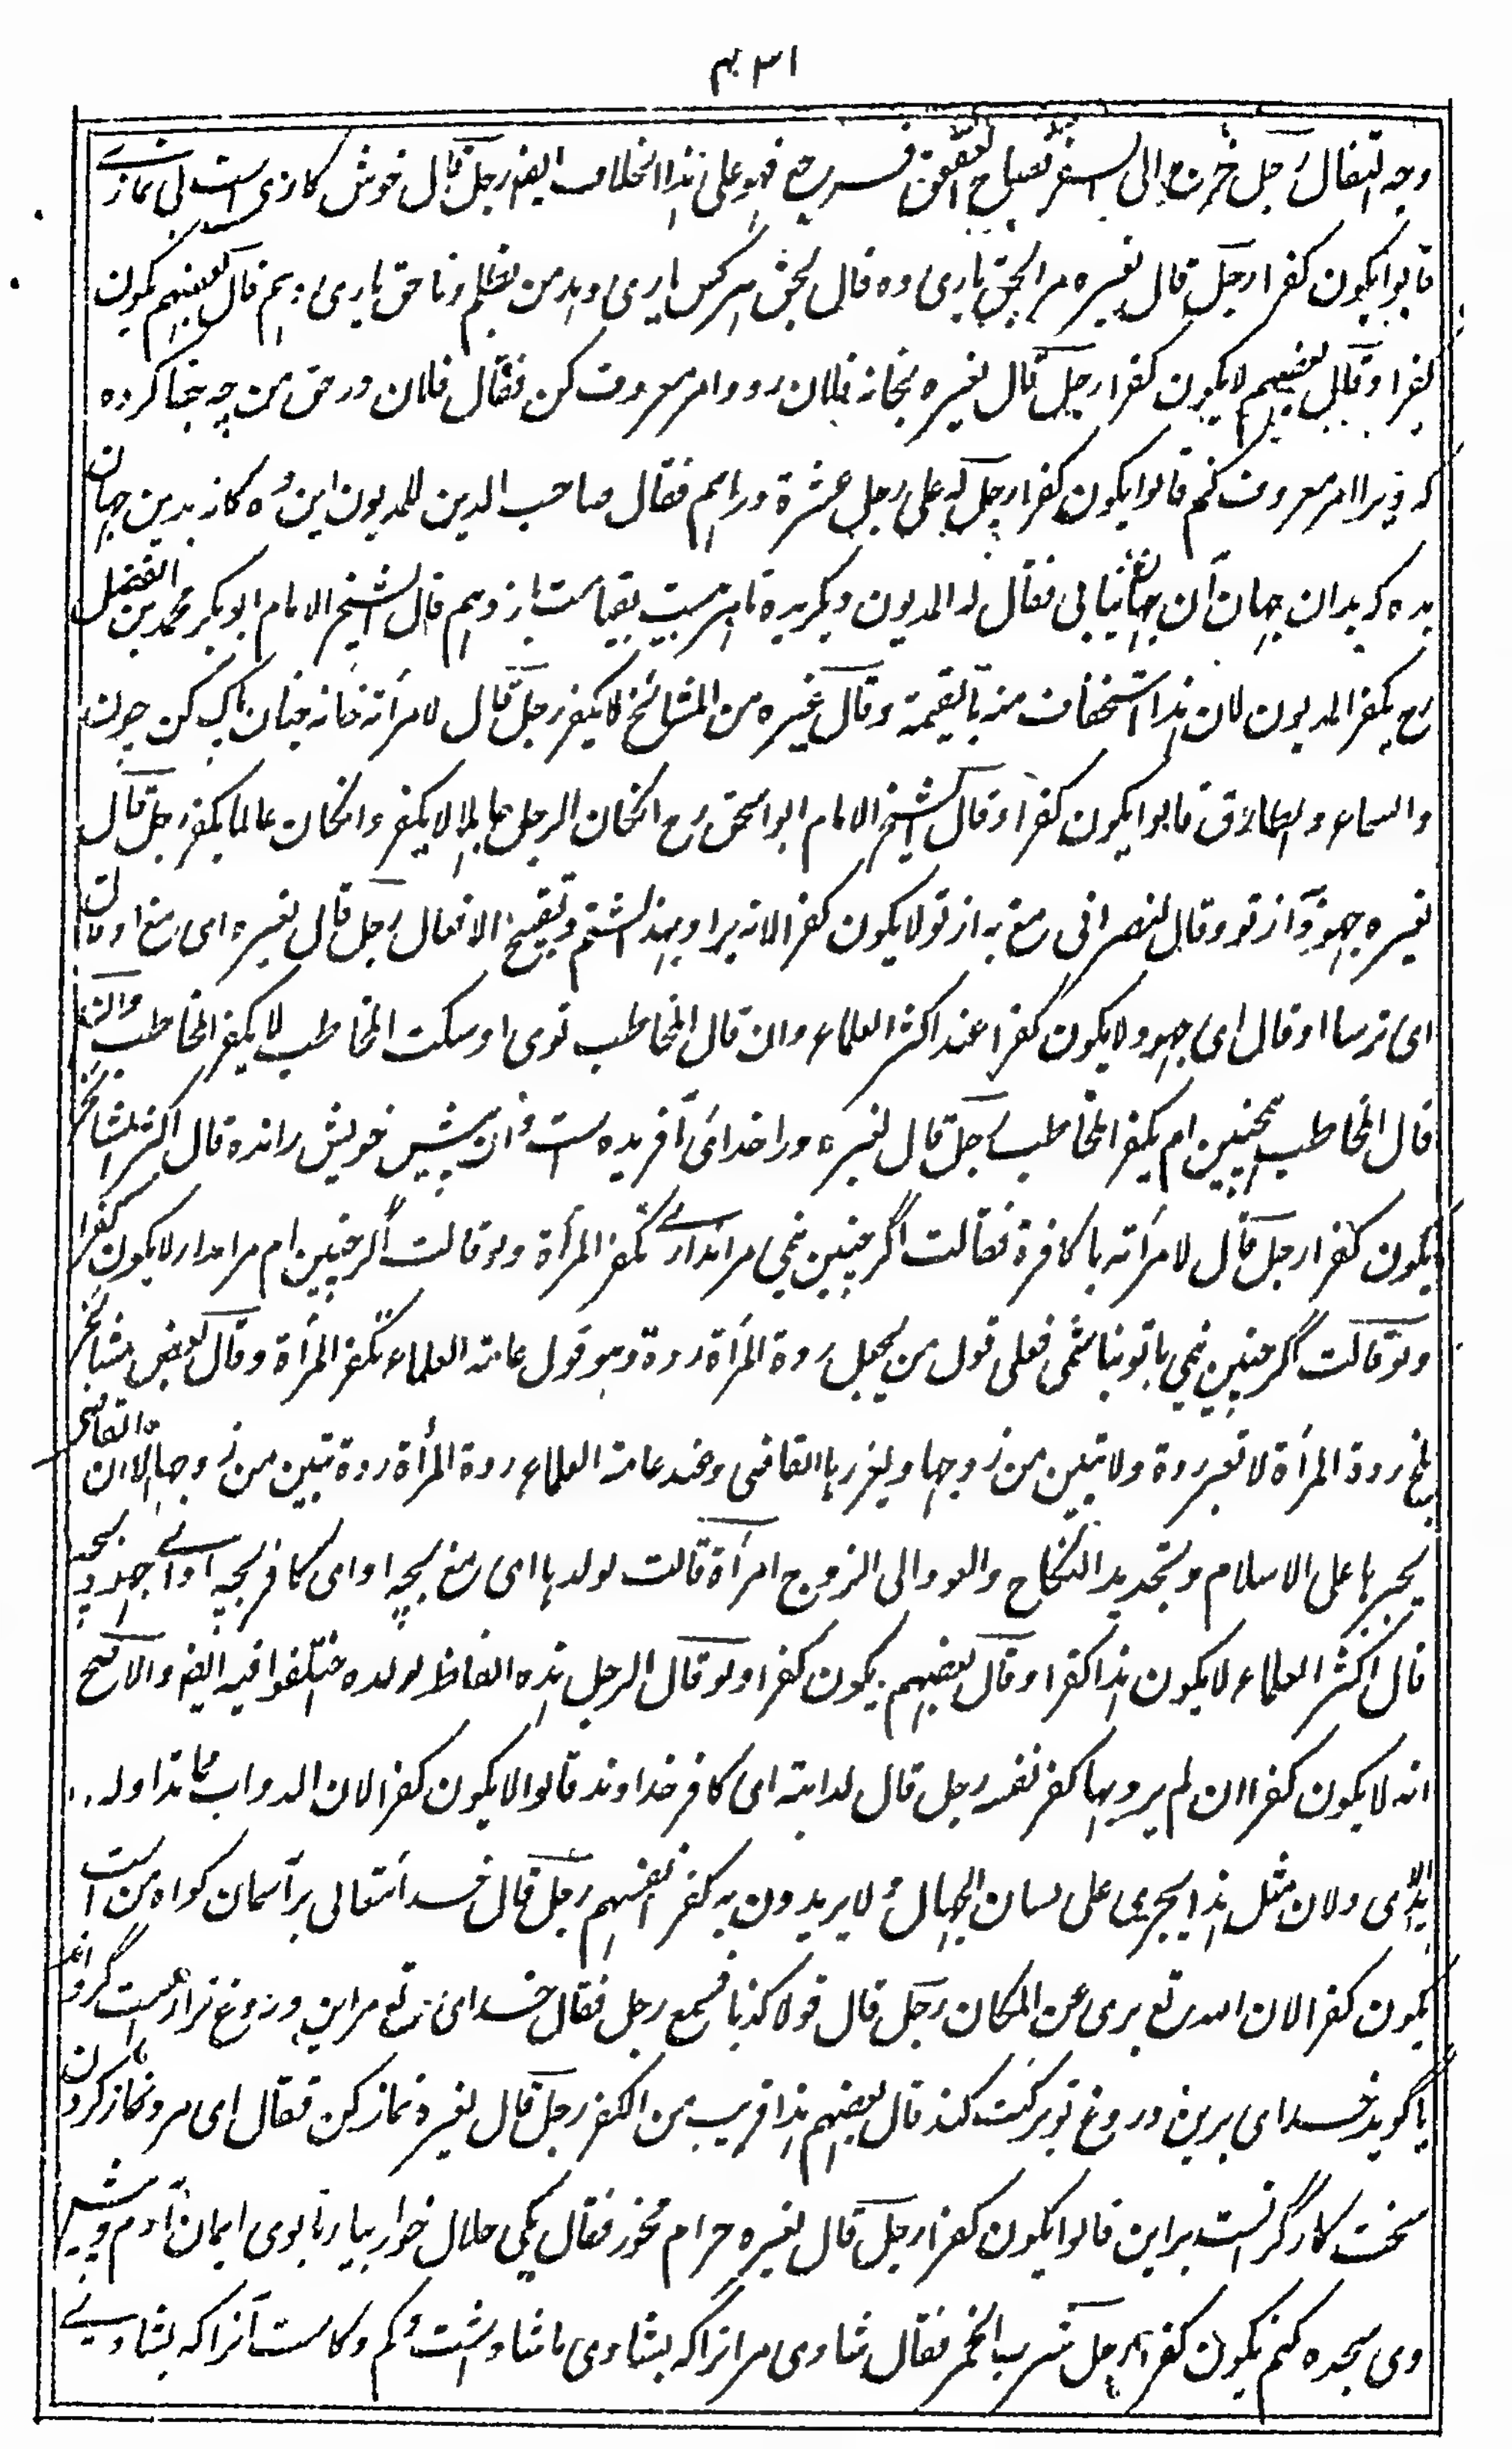 ۴۳۱
وجه التفال رجل خرج الى السفر فصاح العقعق فرجع فهو على هذا الخلاف ايضا رجل قال خوش كارى است بى نمازى
قالوا يكون كفرا رجل قال لغيره مرا بحق يارى ده فقال بحق هركس يارى دهد من بظلم و ناحق يارى دهم قال بعضهم يكون
كفرا و قال بعضهم لا يكون كفرا رجل قال لغيره بخانه فلان رو و امر معروف كن فقال فلان در حق من چه جفا كرده
كه ويرا امر معروف كنم قالوا يكون كفرا رجل له على رجل عشرة دراهم فقال صاحب الدين للمديون اين ده كانه بدين جهان
بده كه بدان جهان آن جهان نيابى فقال له المديون ديگر بده تا هر بيست بقيامت باز دهم قال الشيخ الامام ابو بكر محمد بن الفضل
رح يكفر المديون لان هذا استخفاف منه بالقيمة و قال غيره من المشائخ لا يكفر رجل قال لامرأته خانه چنان پاك كن چون
والسماء والطارق قالوا يكون كفرا و قال الشيخ الامام ابو اسحق رح انكان الرجل جاهلا لا يكفر و انكان عالما يكفر رجل قال
لغيره جهود از تو و قال لنصرانى مغ به از تو لا يكون كفرا لانه يراد بهذا الشتم و تقبيح الافعال رجل قال لغيره اى مغ او قال
اى ترسا او قال اى جهود لا يكون كفرا عند اكثر العلماء و ان قال المخاطب توى او سكت المخاطب لا يكفر المخاطب وان
قال المخاطب همچنين ام يكفر المخاطب رجل قال لغيره ورا خداى آفريده است و از پيش خويش رانده قال اكثر المشائخ
يكون كفرا رجل قال لامرأته يا كافرة فقالت اگر چنين نمى مرا ندارى تكفر المرأة و لو قالت اگر چنين ام مرا مدار لا يكون كفرا
و لو قالت گر چنين نمى با تو نباشمى فعلى قول من يجعل ردة المرأة ردة و هو قول عامة العلماء تكفر المرأة و قال بعض مشائخ
بلخ ردة المرأة لا تعتبر ردة و لا تبين من زوجها و يعزرها القاضى و عند عامة العلماء ردة المرأة ردة تبين من زوجها الا ان القاضى
يجبرها على الاسلام و تجديد النكاح و العود الى الزوج امرأة قالت لولدها اى مغ بچه او اى كافر بچه او اى جهود بچه
قال اكثر العلماء لا يكون هذا كفرا و قال بعضهم يكون كفرا و لو قال الرجل هذه الفاظ لولده اختلفوا فيه ايضا و الاصح
انه لا يكون كفرا ان لم يرد بها كفر نفسه رجل قال لدابته اى كافر خداوند قالوا لا يكون كفرا لان الدواب مما تداوله
الايدى و لان مثل هذا يجرى على لسان الجهال و لا يريدون به كفر انفسهم رجل قال خدا تعالى بر آسمان گواه من است
يكون كفرا لان الله تع برى عن المكان رجل قال قولا كذبا فسمع رجل فقال خداى تع مر اين دروغ ترا راست گرداند
يا گويد خداى برين دروغ تو بركت كند قال بعضهم هذا قريب من الكفر رجل قال لغيره نماز كن فقال اى مرد نماز كردن
سخت كارگرانست بر اين قالوا يكون كفرا رجل قال لغيره حرام مخور فقال يكى حلال خوار بيار تا بوى ايمان آرم و پيش
وى سجده كنم يكون كفرا رجل شرب الخمر فقال شادى مر آنرا كه بشادى ما شادست و كم و كاست آنرا كه بشادى